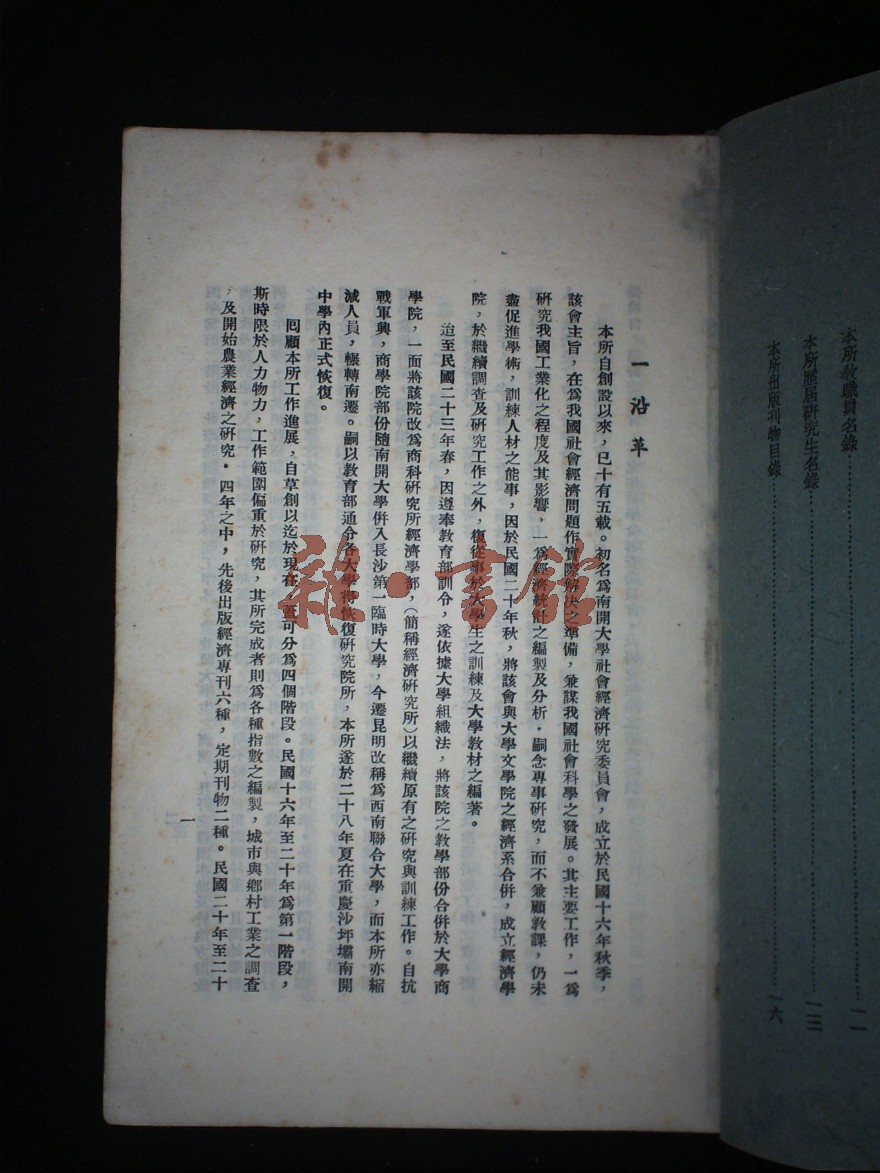 本所敎職員名錄……………………一一
本所歷屆硏究生名錄……………………一三
本所出版刊物目錄……………………一六
一 沿 革
本所自創設以來，已十有五載。初名爲南開大學社會經濟硏究委員會，成立於民國十六年秋季，
該會主旨，在爲我國社會經濟問題作實際解決之準備，兼謀我國社會科學之發展。其主要工作，一爲
硏究我國工業化之程度及其影響，一爲經濟統計之編製及分析。嗣念專事硏究，而不兼顧敎課，仍未
盡促進學術，訓練人材之能事，因於民國二十年秋，將該會與大學文學院之經濟系合併，成立經濟學
院，於繼續調查及硏究工作之外，復從事於大學生之訓練及大學敎材之編著。
迨至民國二十三年春，因遵奉敎育部訓令，遂依據大學組織法，將該院之敎學部份合併於大學商
學院，一面將該院改爲商科硏究所經濟學部，（簡稱經濟硏究所）以繼續原有之硏究與訓練工作。自抗
戰軍興，商學院部份隨南開大學併入長沙第一臨時大學，今遷昆明改稱爲西南聯合大學，而本所亦縮
減人員，輾轉南遷。嗣以敎育部通令各大學得恢復硏究院所，本所遂於二十八年夏在重慶沙坪壩南開
中學內正式恢復。
囘顧本所工作進展，自草創以迄於現在，蓋可分爲四個階段。民國十六年至二十年爲第一階段，
斯時限於人力物力，工作範圍偏重於硏究，其所完成者則爲各種指數之編製，城市與鄕村工業之調查
，及開始農業經濟之硏究。四年之中，先後出版經濟專刊六種，定期刊物二種。民國二十年至二十
一
雜·書館